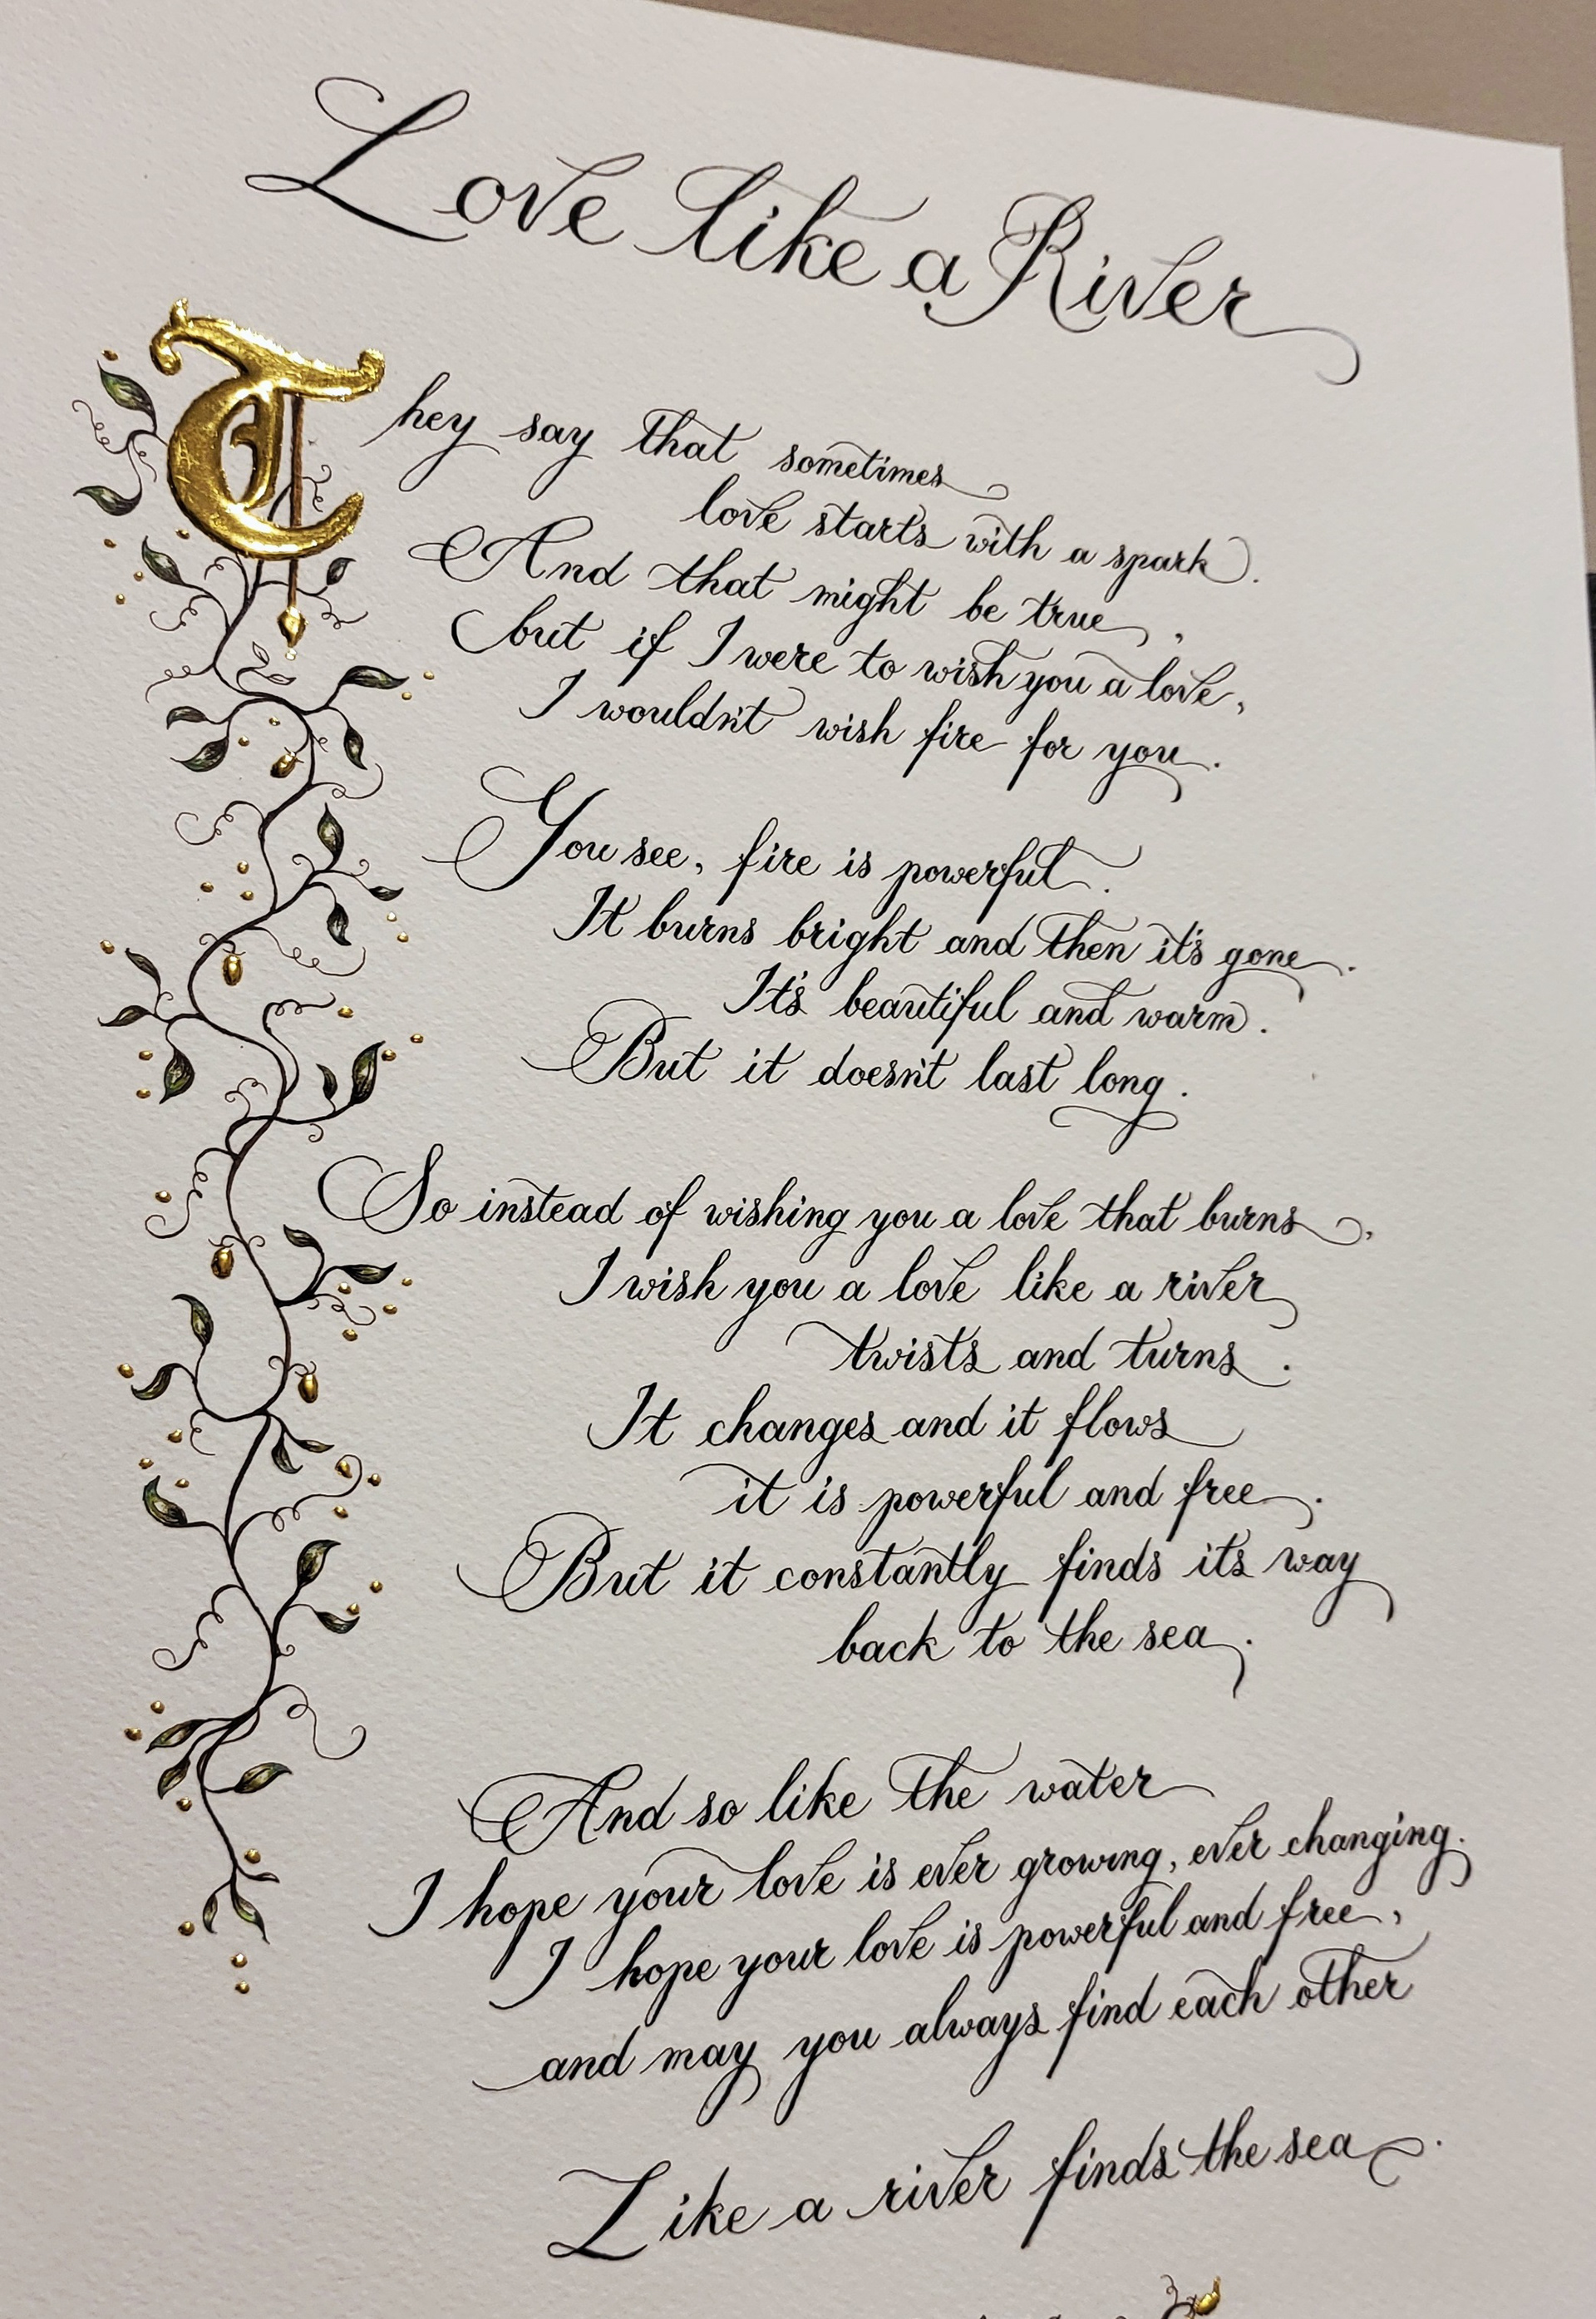 Love like a River
They say that sometimes
love starts with a spark.
And that might be true,
but if I were to wish you a love,
I wouldn't wish fire for you.
You see, fire is powerful.
It burns bright and then it's gone.
It's beautiful and warm.
But it doesn't last long.
So instead of wishing you a love that burns,
I wish you a love like a river
twists and turns.
It changes and it flows
it is powerful and free.
But it constantly finds its way
back to the sea.
And so like the water
I hope your love is ever growing, ever changing.
I hope your love is powerful and free,
and may you always find each other
Like a river finds the sea.